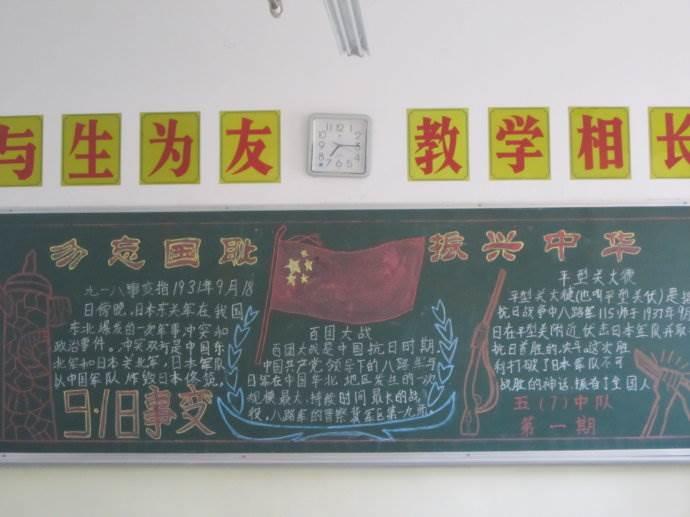 与生为友
教学相长
勿忘国耻
振兴中华
九一八事变指1931年9月18
日傍晚,日本关东军在我国
东北爆发的一次军事冲突和
政治事件。冲突双方是中国东
北军和日本关东军,日本军队
以中国军队炸毁日本修筑
9·18事变
百团大战
百团大战是中国抗日时期,
中国共产党领导下的八路军与
日军在中国华北地区发生的一次
规模最大、持续时间最长的战
役,八路军的晋察冀军区第一九
平型关大捷
平型关大捷(也叫平型关伏)是
抗日战争中八路军115师于1937年9
日在平型关附近伏击日本军队并取
抗日首胜的
利打破了日本军队不可
战胜的神话,振奋了全国人
五(7)中队
第一期